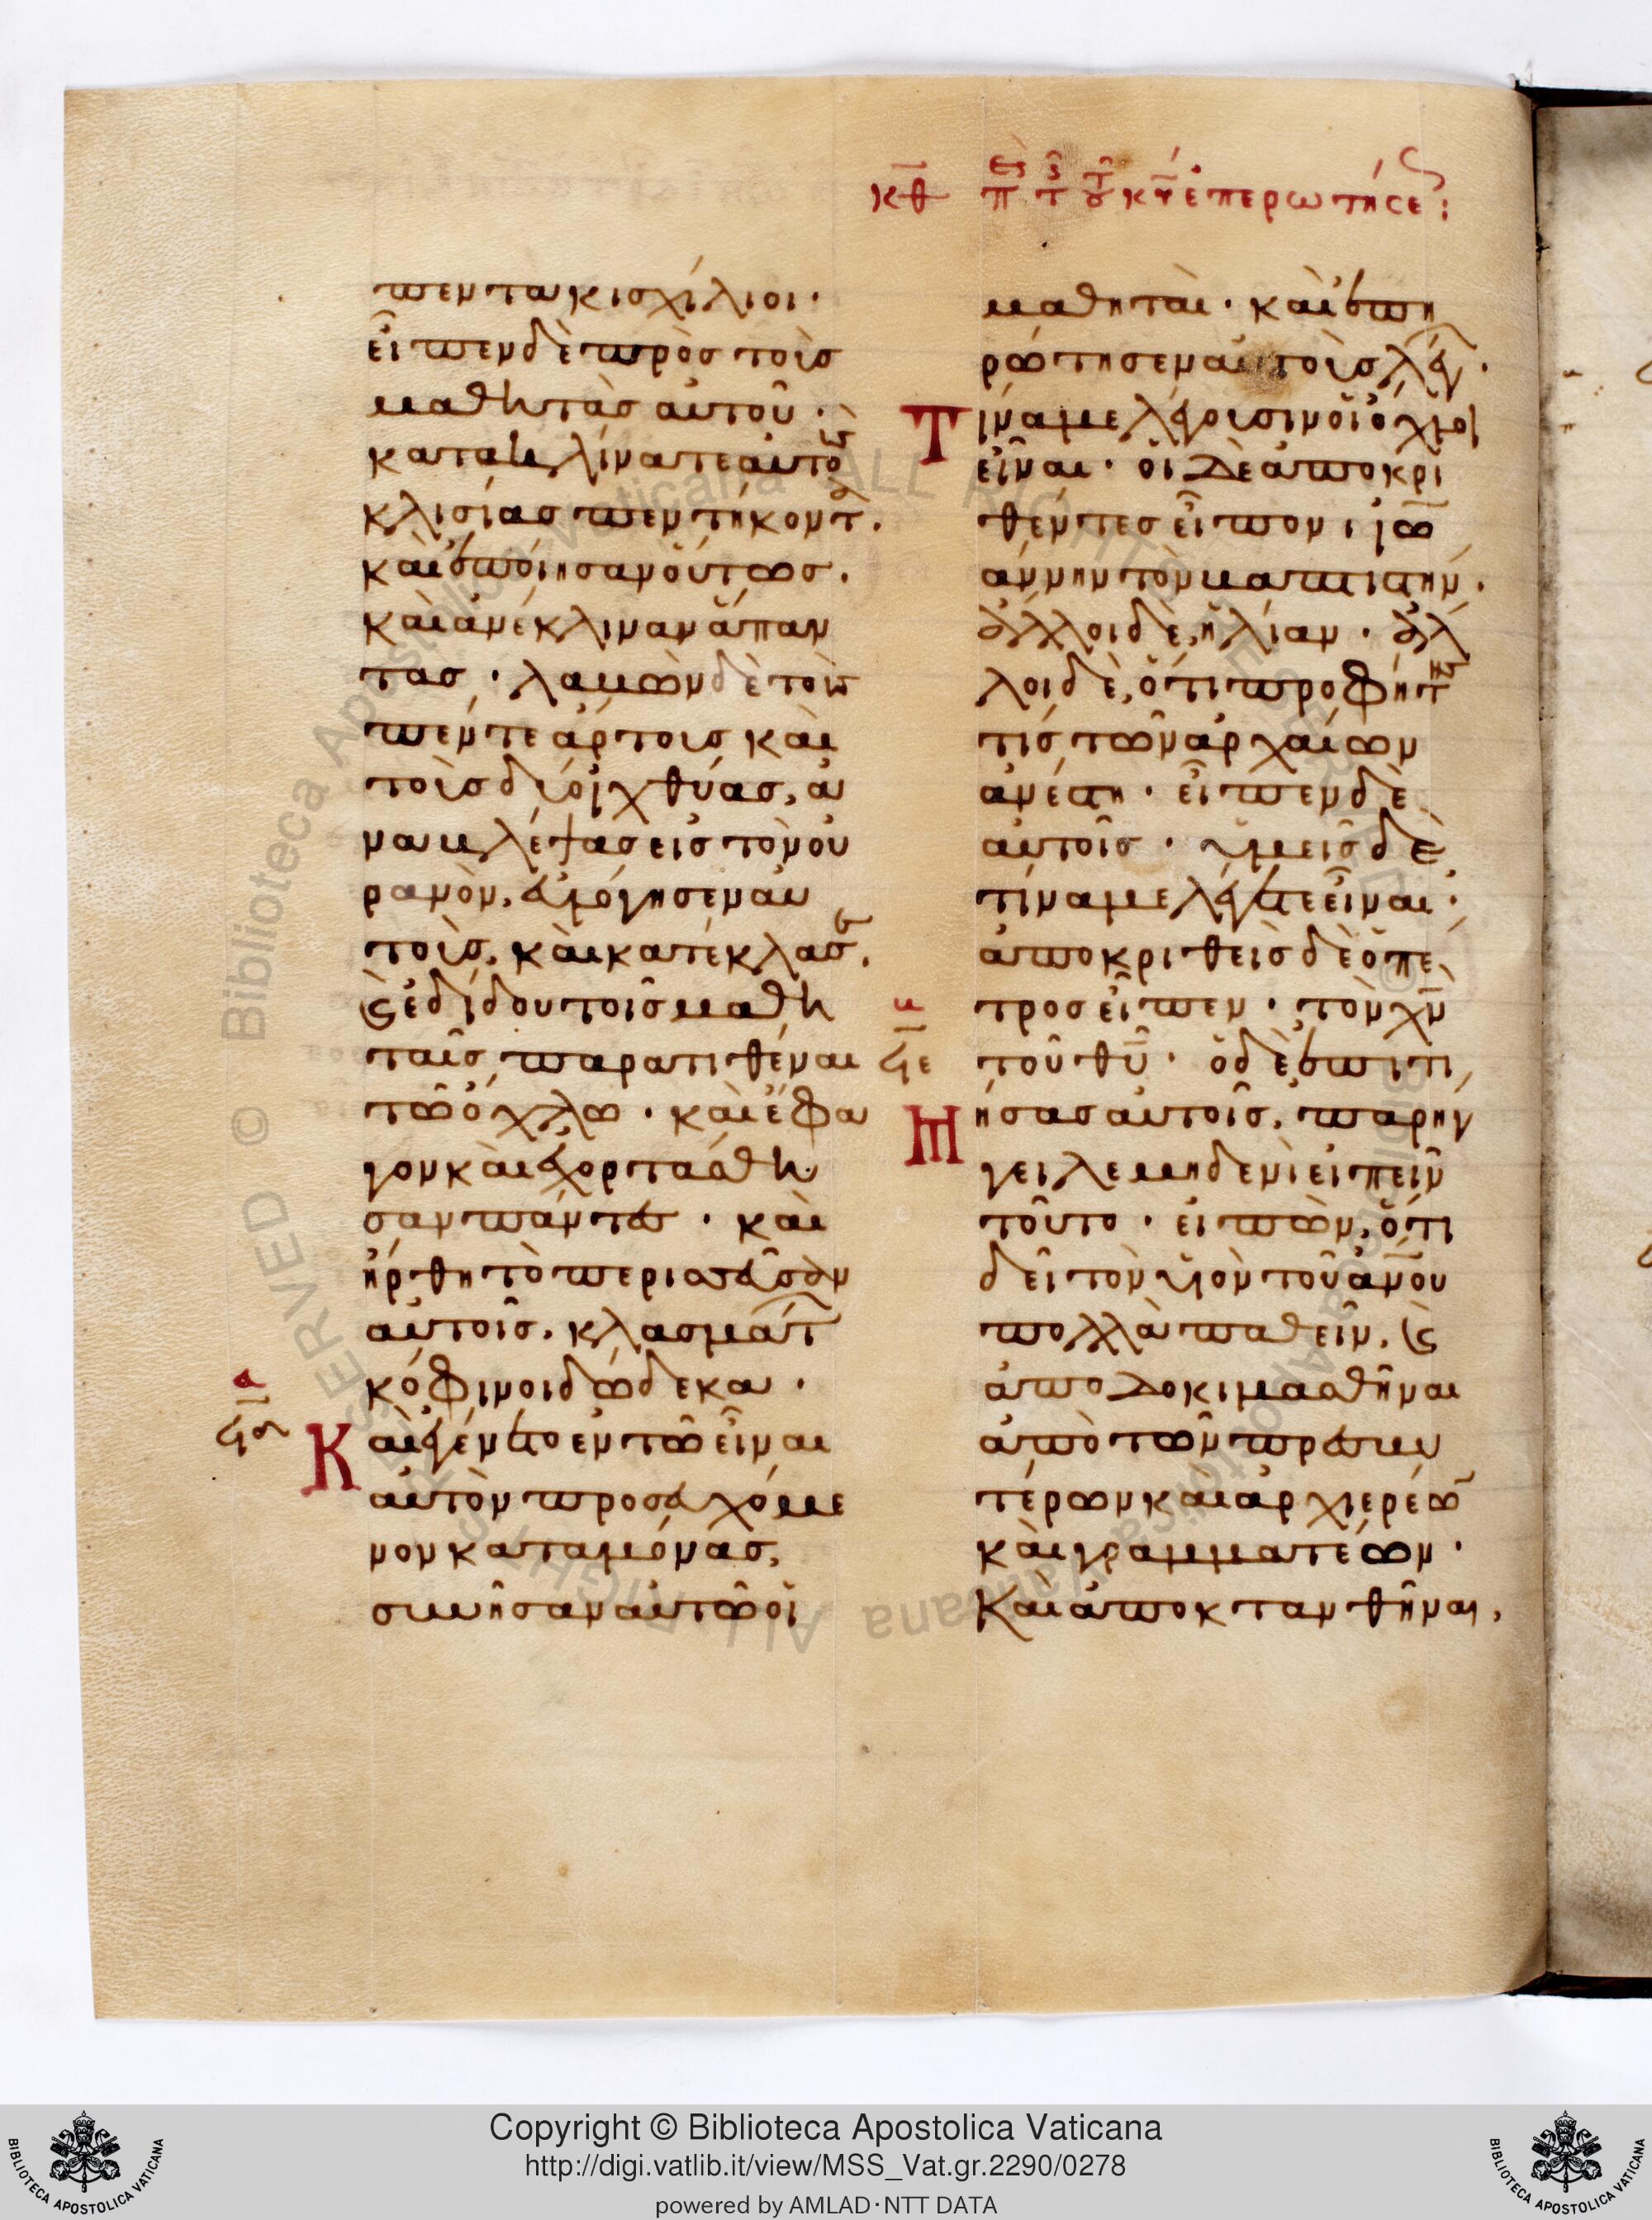 κθ π τ ου κυ ἐπερωτήσε:
πεντακισχίλιοι·
εἶπεν δὲ πρὸς τοὺς
μαθητὰς αὐτοῦ·
κατακλίνατε αὐτοὺς
κλισίας πεντήκοντα·
καὶ ἐποίησαν οὕτως·
καὶ ἀνέκλιναν ἅπαν
τας· λαβὼν δὲ τοὺς
πέντε ἄρτους καὶ
τοὺς δύο ἰχθύας, ἀ
ναβλέψας εἰς τὸν οὐ
ρανὸν, εὐλόγησεν αὐ
τοὺς, καὶ κατέκλασεν,
καὶ ἐδίδου τοῖς μαθη
ταῖς, παρατιθέναι
τῶ ὄχλω· καὶ ἔφα
γον καὶ ἐχορτάσθη
σαν πάντες· καὶ
ἤρθη τὸ περισσεῦσαν
αὐτοῖς, κλασμάτων
κόφινοι δώδεκα·
Καὶ ἐγένετο ἐν τῶ εἶναι
αὐτὸν προσευχόμε
νον καταμόνας,
συνῆσαν αὐτῶ οἱ
μαθηταὶ· καὶ ἐπη
ρώτησεν αὐτοὺς λέγων·
Τίνα με λέγουσιν οἱ ὄχλοι
εἶναι· οἱ δὲ ἀποκρι
θέντες εἶπον· ἰω
άννην τὸν βαπτιστήν·
ἄλλοι δὲ, ἠλίαν· ἄλ
λοι δὲ, ὅτι προφήτης
τίς τῶν ἀρχαίων
ἀνέστη· εἶπεν δὲ
αὐτοῖς· ὑμεῖς δὲ
τίνα με λέγετε εἶναι·
ἀποκριθεὶς δὲ ὁ πέ
τρος εἶπεν· τὸν χν
τοῦ θυ· ὁ δὲ ἐπιτι
μήσας αὐτοῖς, παρήγ
γειλε μηδενὶ εἰπεῖν
τοῦτο· εἰπὼν, ὅτι
δεῖ τὸν υἱὸν τοῦ ανου
πολλὰ παθεῖν, καὶ
ἀποδοκιμασθῆναι
ἀπὸ τῶν πρεσβυ
τέρων καὶ ἀρχιερέων
καὶ γραμματέων·
Καὶ ἀποκτανθῆναι,
Copyright © Biblioteca Apostolica Vaticana
http://digi.vatlib.it/view/MSS_Vat.gr.2290/0278
powered by AMLAD·NTT DATA